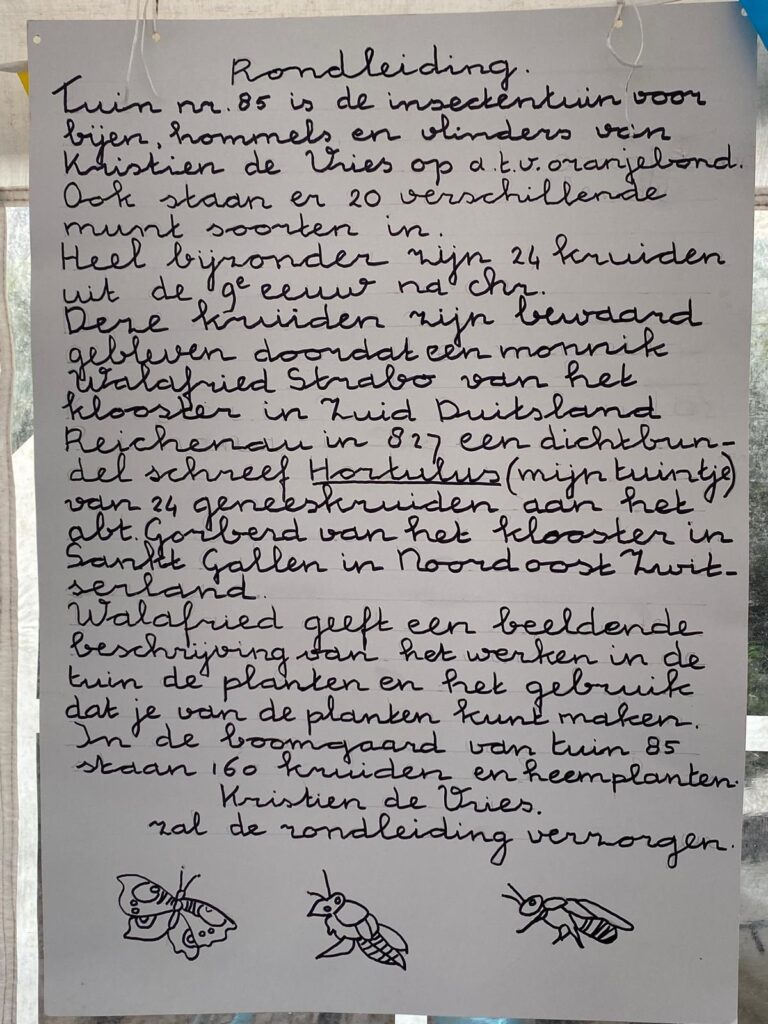 Rondleiding.
Tuin nr. 85 is de insectentuin voor
bijen, hommels en vlinders van
Kristien de Vries op a.t.v. oranjebond.
Ook staan er 20 verschillende
munt soorten in.
Heel bijzonder zijn 24 kruiden
uit de 9e eeuw na chr.
Deze kruiden zijn bewaard
gebleven doordat een monnik
Walafried Strabo van het
klooster in Zuid Duitsland
Reichenau in 827 een dichtbun-
del schreef Hortulus (mijn tuintje)
van 24 geneeskruiden aan het
abt. Gorberd van het klooster in
Sankt Gallen in Noord oost Zwit-
serland.
Walafried geeft een beeldende
beschrijving van het werken in de
tuin de planten en het gebruik
dat je van de planten kunt maken.
In de boomgaard van tuin 85
staan 160 kruiden en heemplanten.
Kristien de Vries.
zal de rondleiding verzorgen.